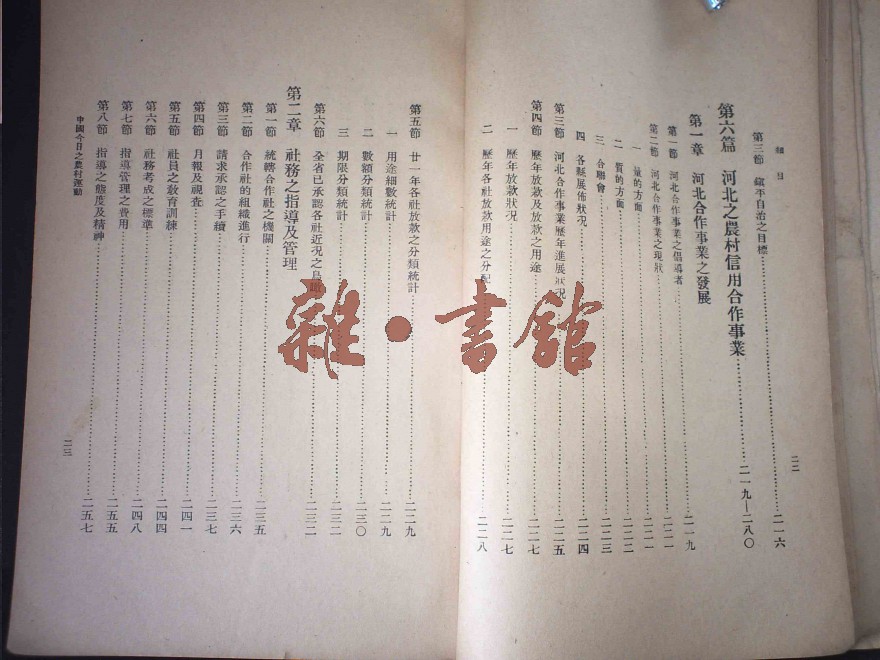 細目
第三節 鎮平自治之目標………二一六
第六篇 河北之農村信用合作事業………二一九—二八〇
第一章 河北合作事業之發展………二一九
第一節 河北合作事業之倡導者………二二一
第二節 河北合作事業之現狀………二二一
一 量的方面………二二二
二 質的方面………二二二
三 合聯會………二二三
四 各縣展佈狀況………二二四
第三節 河北合作事業歷年進展狀況………二二五
第四節 歷年放款及放款之用途………二二七
一 歷年放款狀況………二二七
二 歷年各社放款用途之分配………二二八
二二
第五節 廿一年各社放款之分類統計………二二九
一 用途細數統計………二二九
二 數額分類統計………二三〇
三 期限分類統計………二三二
第六節 全省已承認各社近況之鳥瞰………二三二
第二章 社務之指導及管理………二三五
第一節 統轄合作社之機關………二三五
第二節 合作社的組織進行………二三六
第三節 請求承認之手續………二三七
第四節 月報及視查………二四一
第五節 社員之教育訓練………二四四
第六節 社務考成之標準………二四八
第七節 指導管理之費用………二五五
第八節 指導之態度及精神………二五七
中國今日之農村運動
二三
雜·書館